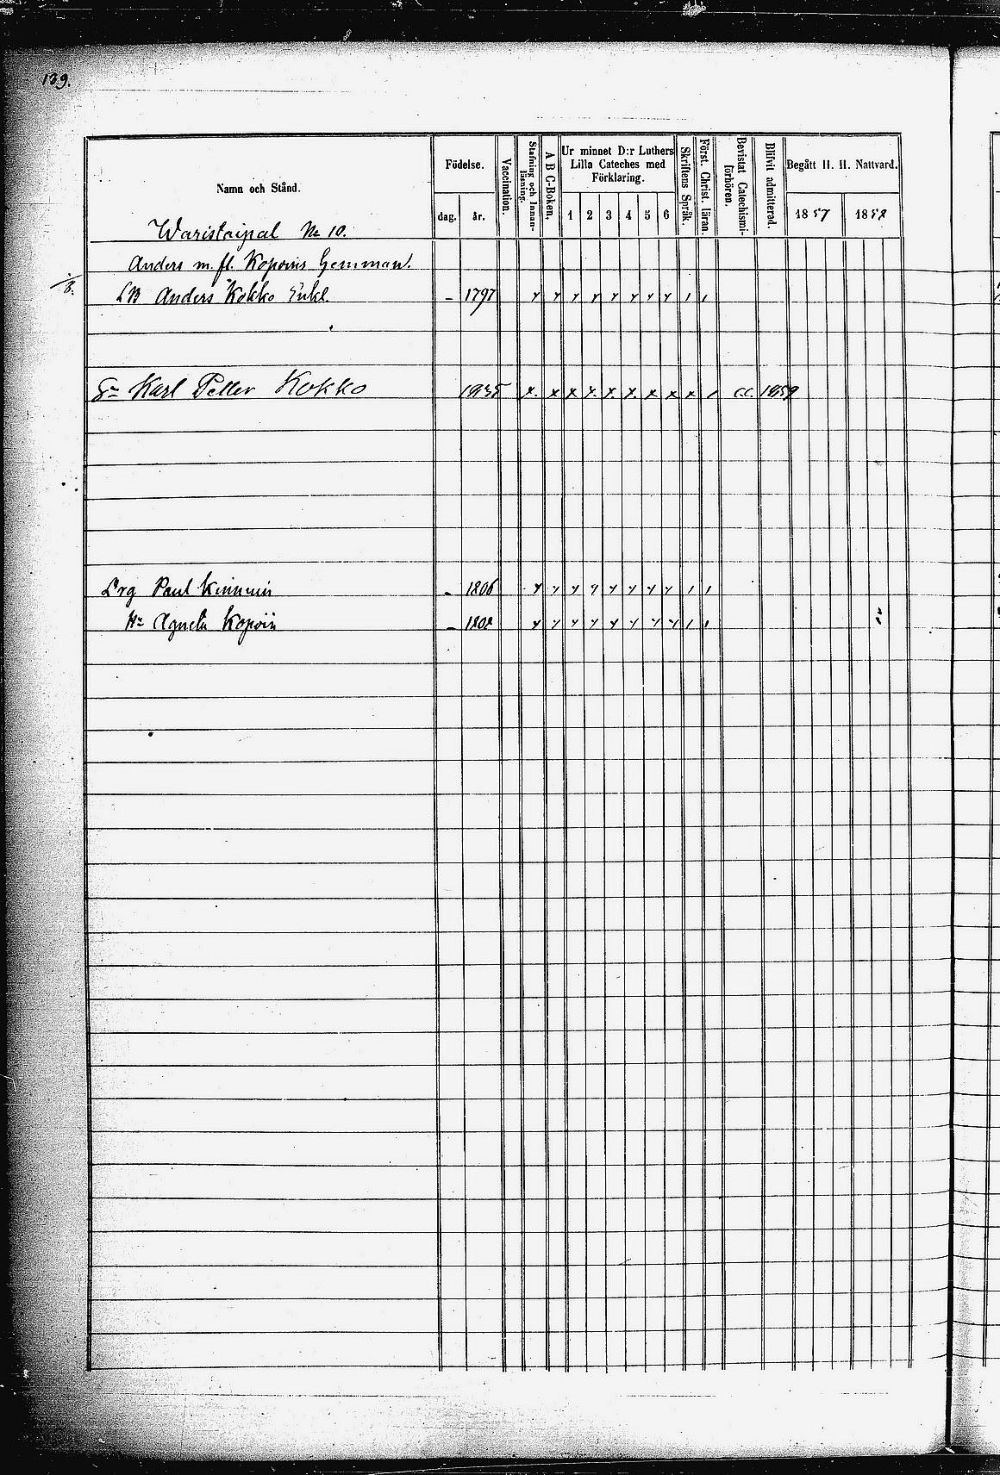 139.
Namn och Stånd.
Födelse.
dag.
år.
Vaccination.
Stafning och Innanläsning.
A B C-Boken.
Ur minnet D:r Luthers Lilla Cateches med Förklaring.
1 2 3 4 5 6
Skriftens Språk.
Först. Christ. läran.
Bevistat Catechismiförhören.
Blifvit admitterad.
Begått H. H. Nattvard.
1857 1858
Waristaipal No 10.
Anders m. fl. Kopoins hemman.
LB Anders Kokko Enkl. - 1797
Karl Petter Kokko 1835 c.c. 1859
Paul Kinnuin - 1806
Hu Agneta Kopoin - 1808